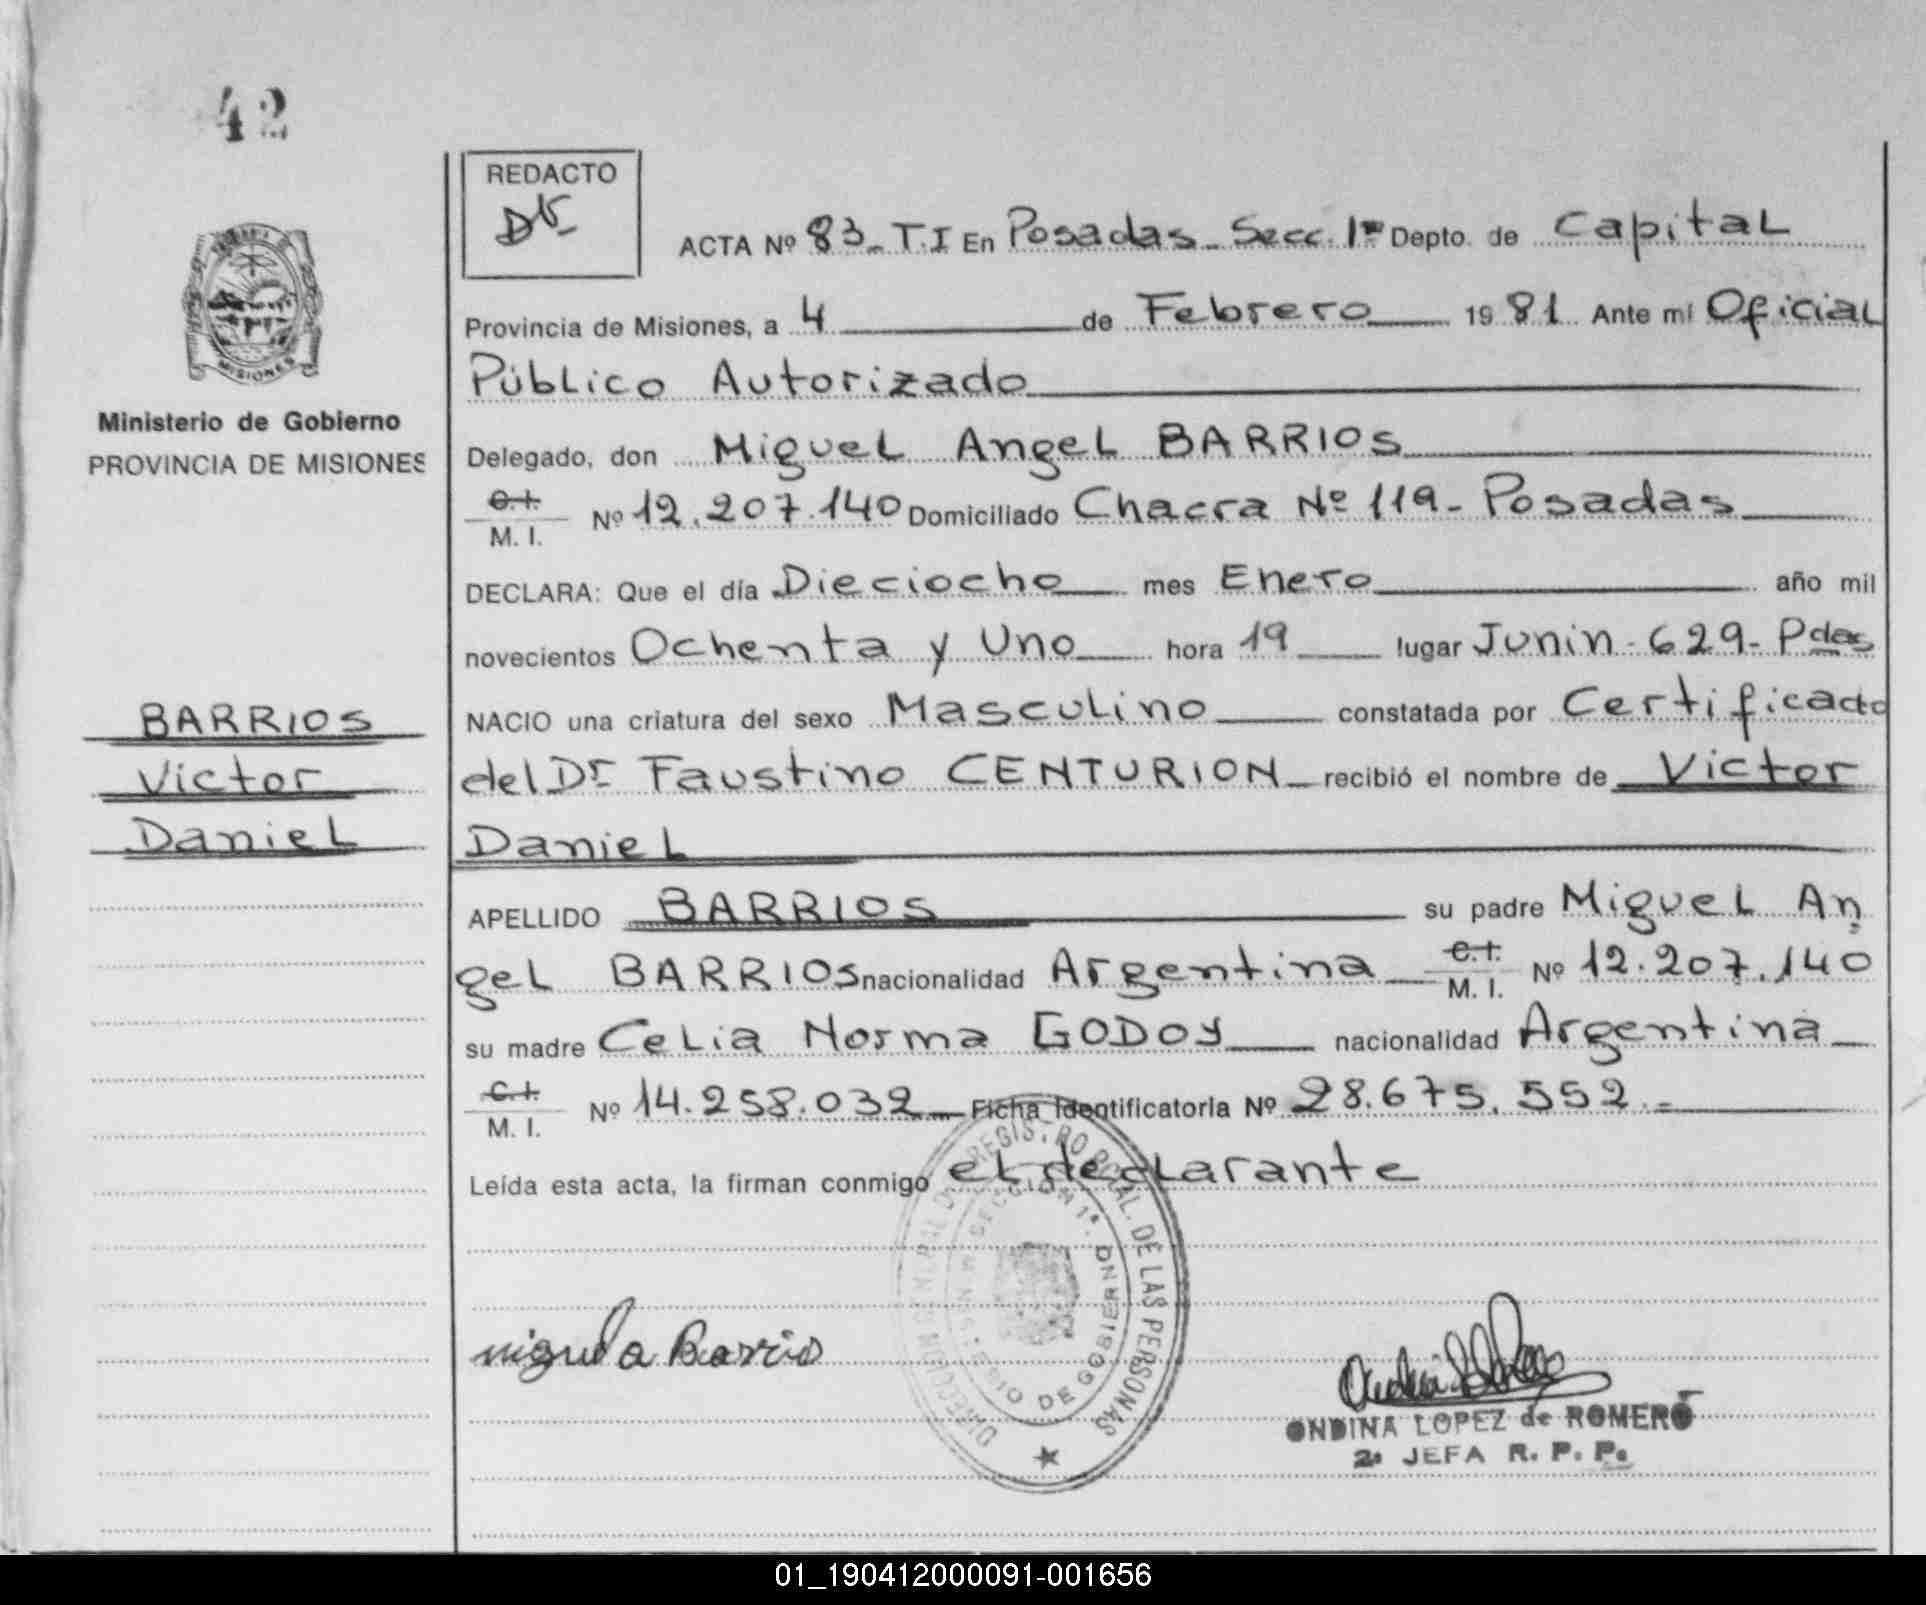 42
REDACTO
ACTA Nº 83_ T.I En Posadas_ Secc. 1ª Depto. de Capital
Provincia de Misiones, a 4 de Febrero 1981 Ante mi Oficial
Público Autorizado
MISIONES
Ministerio de Gobierno
PROVINCIA DE MISIONES
Delegado, don Miguel Angel BARRIOS
C.I. M. I. Nº 12.207.140 Domiciliado Chacra Nº 119- Posadas
DECLARA: Que el día Dieciocho mes Enero año mil
novecientos Ochenta y Uno hora 19 lugar Junin- 629- Pdas
BARRIOS
Victor
Daniel
NACIO una criatura del sexo Masculino constatada por Certificado
del Dr Faustino CENTURION recibió el nombre de Victor
Daniel
APELLIDO BARRIOS su padre Miguel An
gel BARRIOS nacionalidad Argentina C.I. M. I. Nº 12.207.140
su madre Celia Norma GODOY nacionalidad Argentina
C.I. M. I. Nº 14.258.032 Ficha Identificatoria Nº 28.675.552.-
Leída esta acta, la firman conmigo el declarante
DIRECCION GENERAL D. REGIST. RO PCIAL. DE LAS PERSONAS
SECCION 1ª.
MINISTERIO DE GOBIERNO
Miguel a Barrios
ONDINA LOPEZ de ROMERO
2ª JEFA R. P. P.
01_190412000091-001656